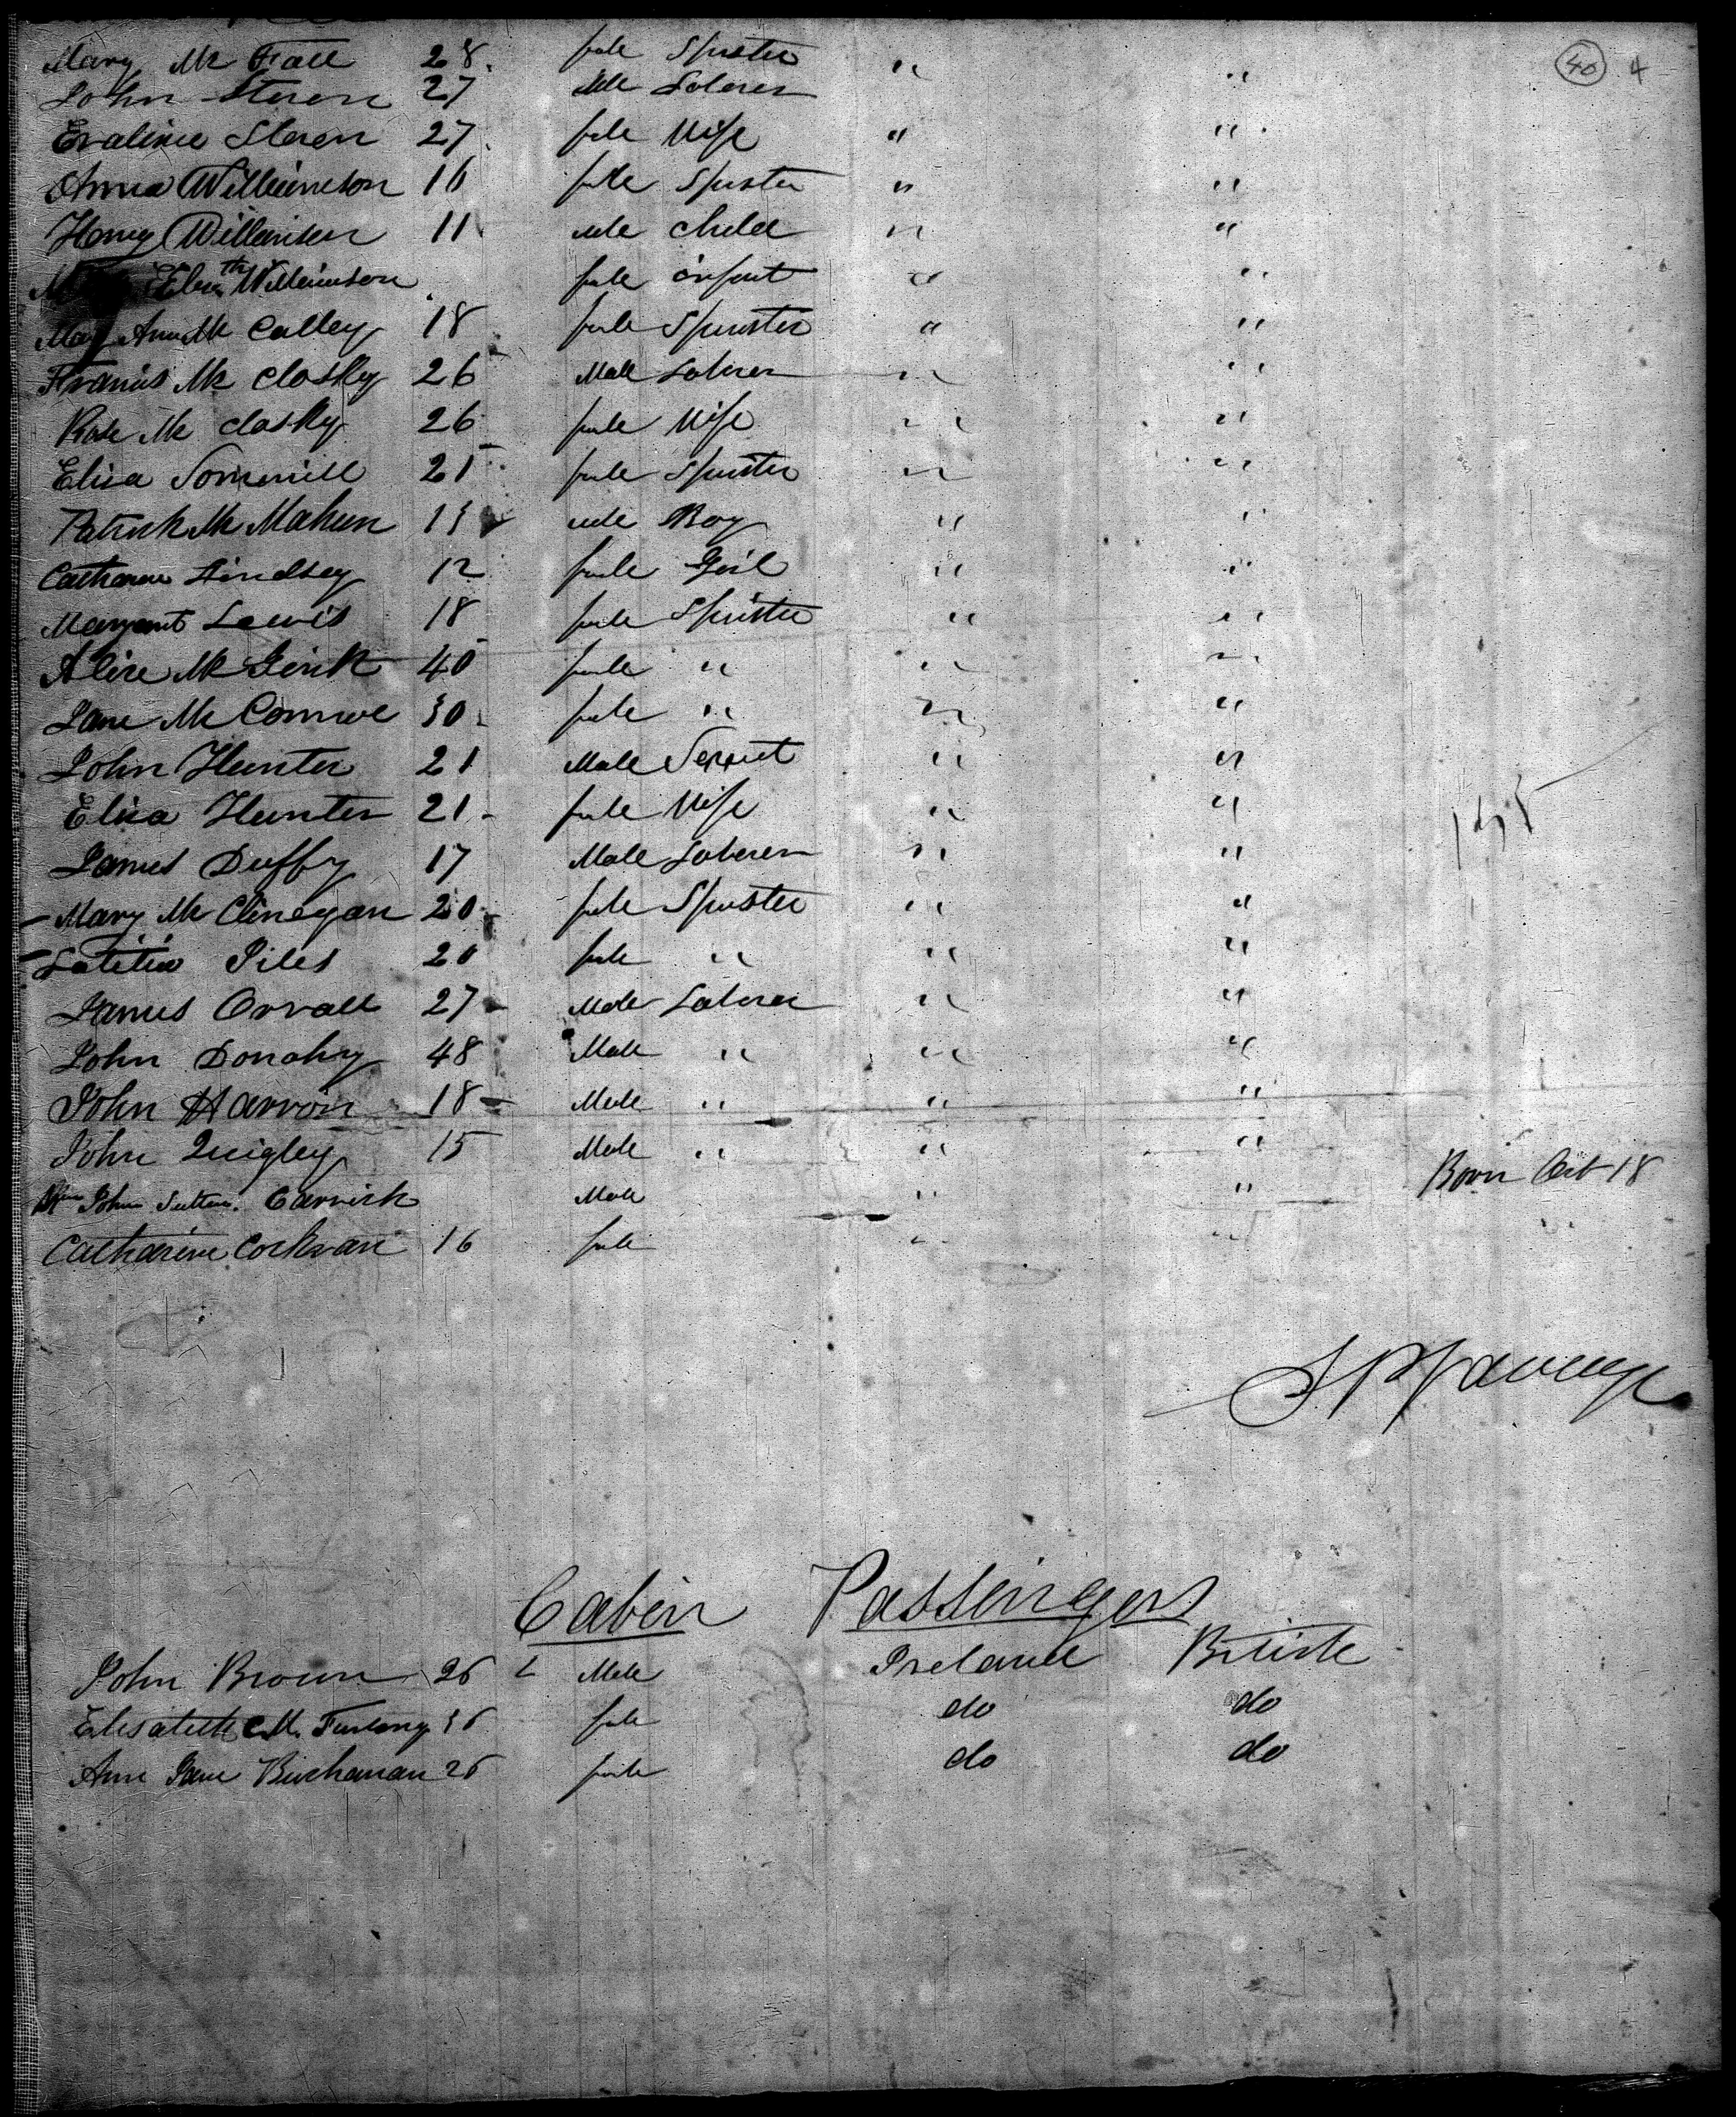 40 4
Mary Mc Fall 28 fmle Spinster " "
John Steven 27 Mle Laborer
Evaline Steven 27 fmle Wife " "
Anna Williamson 16 fmle Spinster " "
Henry Williamson 11 Mle Child " "
Eliz.th Williamson fmle infant " "
Mary Ann Mc Calley 18 fmle Spinster " "
Francis Mc Closky 26 Male Laborer " "
Rose Mc Closky 26 fmle Wife " "
Eliza 21 fmle Spinster " "
Patrick Mc Mahun 13 Mle Boy " "
Catharine Lindsey 12 fmle Girl " "
Margaret Lewis 18 fmle Spinster " "
Alice Mc Gink 40 fmle " " "
Jane Mc 30 fmle " " "
John Hunter 21 Male Servent " "
Eliza Hunter 21 fmle Wife " "
James Duffy 17 Male Laborer " "
Mary Mc Clinegan 20 fmle Spinster " "
Letitia Piles 20 fmle " " "
James Orvall 27 Male Laborer " "
John Donahy 48 Male " " "
John Harron 18 Male " " "
John Quigley 15 Male " " "
Wm John Sutton Carrick Male " " Born Oct 18
Catharine Corkran 16 fmle " "
Cabin Passengers
John Brown 26 Male Ireland British
Elisabeth C. M. Furlong 36 fmle do do
Ann Jane Buchanan 26 fmle do do